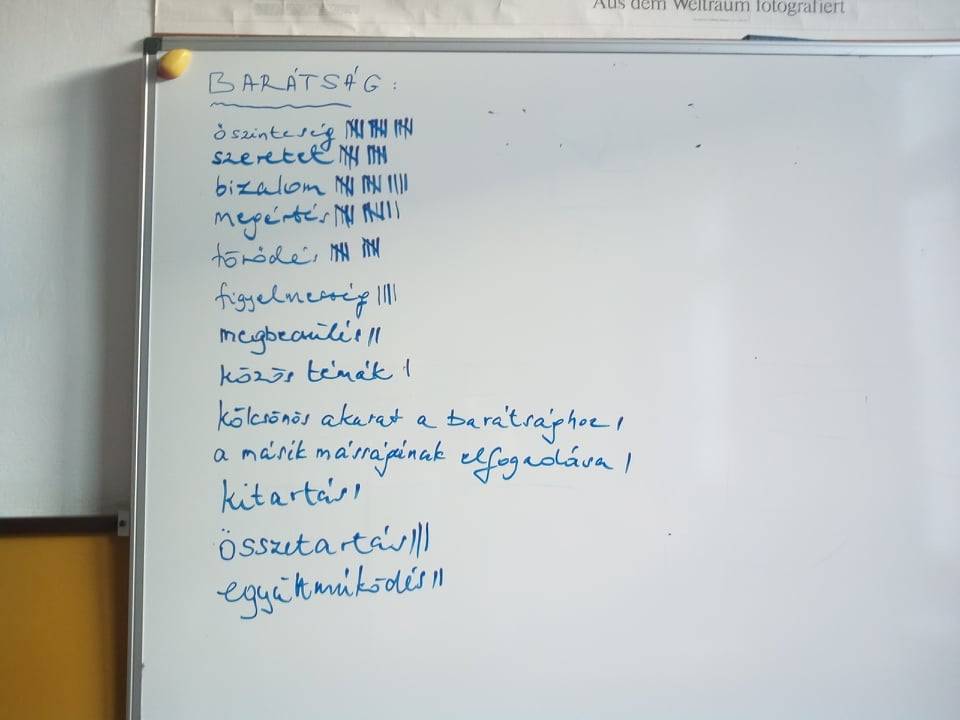 Aus dem Weltraum fotografiert
BARÁTSÁG:
őszinteség 卌 卌 卌
szeretet 卌 卌
bizalom 卌 卌 ||||
megértés 卌 卌 ||
törődés 卌 卌
figyelmesség ||||
megbecsülés ||
közös témák |
kölcsönös akarat a barátsághoz |
a másik másságának elfogadása |
kitartás |
összetartás |||
együttműködés ||